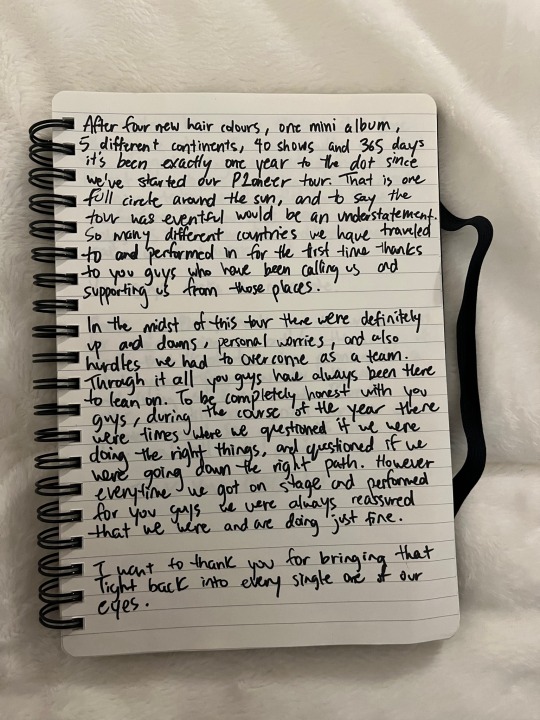 After four new hair colours, one mini album,
5 different continents, 40 shows and 365 days
it's been exactly one year to the dot since
we've started our P1oneer tour. That is one
full circle around the sun, and to say the
tour was eventful would be an understatement.
So many different countries we have traveled
to and performed in for the first time thanks
to you guys who have been calling us and
supporting us from those places.
In the midst of this tour there were definitely
up and downs, personal worries, and also
hurdles we had to overcome as a team.
Through it all you guys have always been there
to lean on. To be completely honest with you
guys, during the course of the year there
were times where we questioned if we were
doing the right things, and questioned if we
were going down the right path. However
everytime we got on stage and performed
for you guys we were always reassured
that we were and are doing just fine.
I want to thank you for bringing that
light back into every single one of our
eyes.